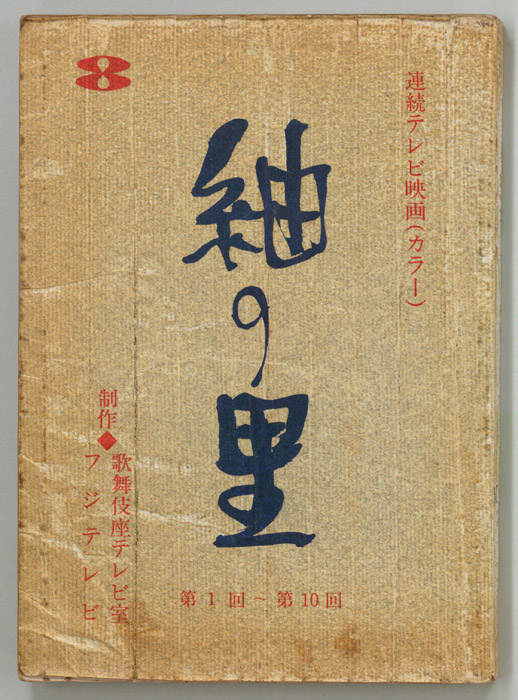 連続テレビ映画(カラー)
紬の里
制作◆歌舞伎座テレビ室
フジテレビ
第1回~第10回